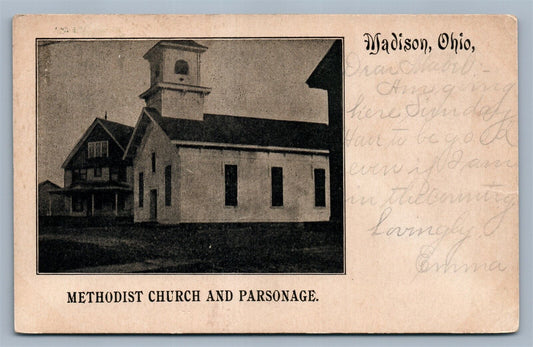 Madison, Ohio,
Dear Mabel:-
Am going
here Sunday
Have to be good
even if I am
in the country
Lovingly
Emma
METHODIST CHURCH AND PARSONAGE.